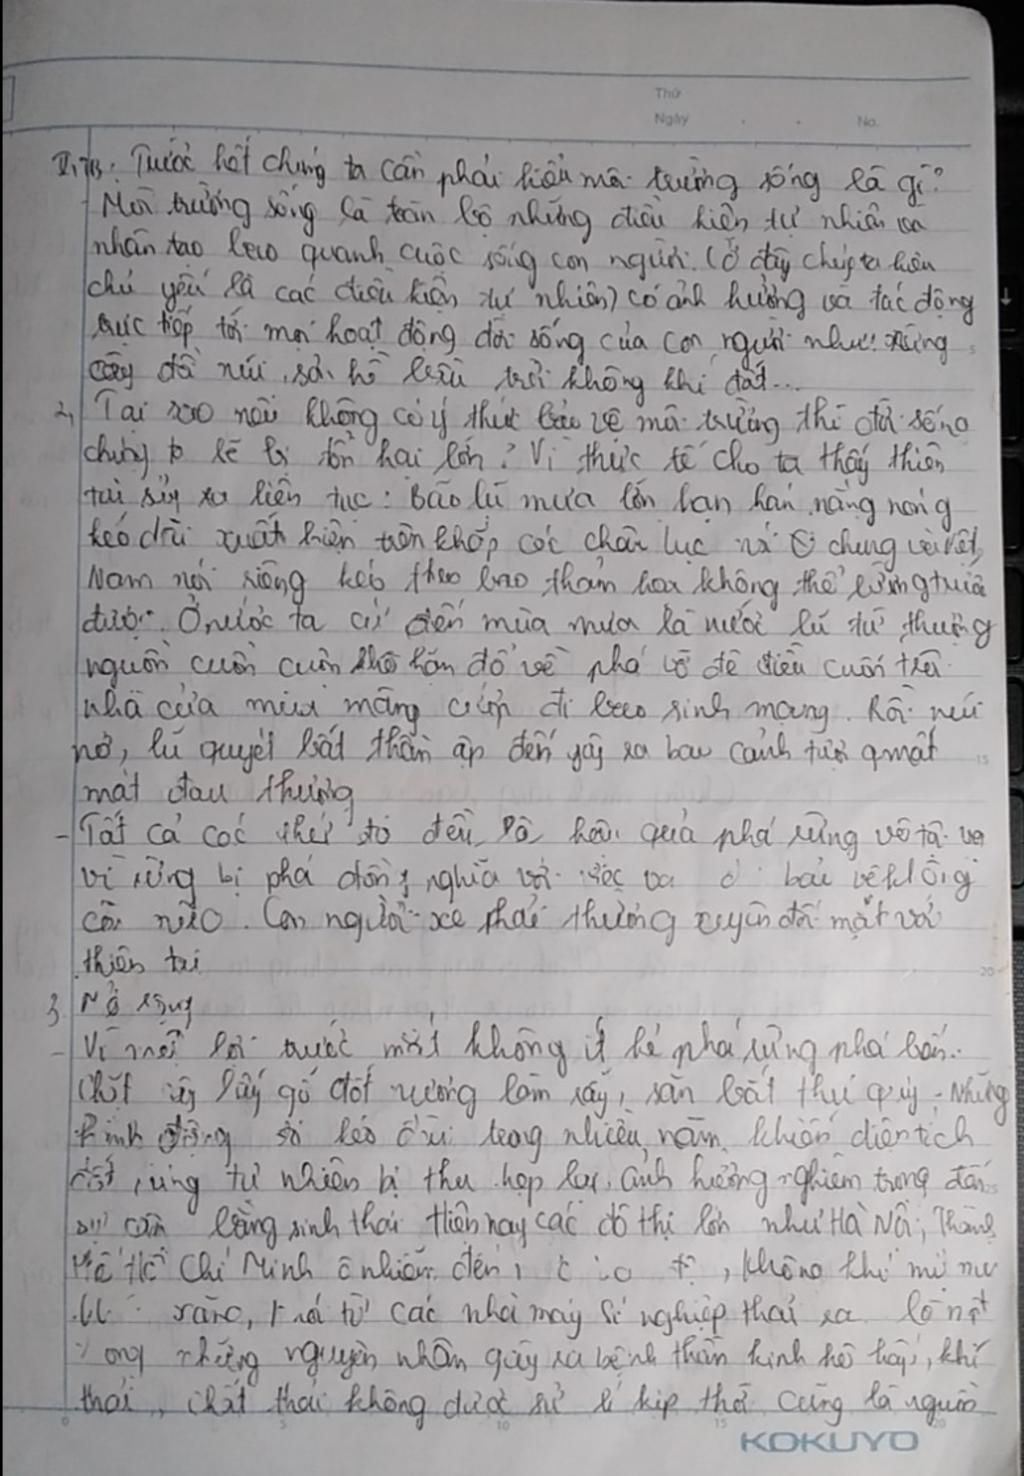 Thứ
Ngày No.
II, TB: Trước hết chúng ta cần phải hiểu môi trường sống là gì?
- Môi trường sống là toàn bộ những điều kiện tự nhiên và
nhân tạo bao quanh cuộc sống con người. (ở đây chúng ta hiểu
chủ yếu là các điều kiện tự nhiên) có ảnh hưởng và tác động
trực tiếp tới mọi hoạt động đời sống của con người như: rừng
cây đồi núi, sô. hồ bầu trời không khí đất...
2, Tại sao nếu không có ý thức bảo vệ môi trường thì đời sống
chúng ta sẽ bị tổn hại lớn? Vì thực tế cho ta thấy thiên
tai sảy ra liên tục: Bão lũ mưa lớn hạn hán, nắng nóng
kéo dài xuất hiện trên khắp các châu lục nói chung và Việt
Nam nói riêng kéo theo bao thảm họa không thể lường trước
được. Ở nước ta cứ đến mùa mưa là nước lũ từ thượng
nguồn cuồn cuộn đổ về phá vỡ đê điều cuốn trôi
nhà cửa mùa màng cướp đi bao sinh mạng. Rồi núi
nở, lũ quyét bất thần ập đến gây ra bao cảnh tượng mất
mát đau thương
- Tất cả các thứ đó đều là hậu quả phá rừng vô tội vạ
vì rừng bị phá đồng nghĩa với việc bảo vệ không
còn nữa. Con người xe phải thường xuyên đối mặt với
thiên tai
3. Mở rộng
- Vì mối lợi trước mắt không ít kẻ phá rừng phá bán..
Chặt cây lấy gỗ đốt nương làm rẫy, săn bắt thú quý. Những
hành động đó kéo dài trong nhiều năm khiến diện tích
đất rừng tự nhiên bị thu hẹp lại, ảnh hưởng nghiêm trọng đến
sự cân bằng sinh thái Hiện nay các đô thị lớn như Hà Nội, Thành
Phố Hồ Chí Minh ô nhiễm đến, không khí mù mịt
xăng, khói từ các nhà máy xí nghiệp thải ra là một
trong những nguyên nhân gây ra bệnh thần kinh hô hấp, khí
thải, chất thải không được sử lí kịp thời cũng là nguồn
0 5 10 15 20
KOKUYO